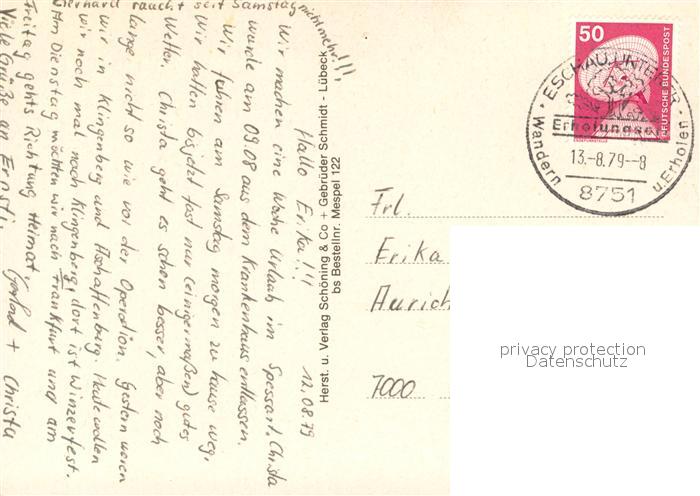 12.08.79
Hallo Erika!!!
Wir machen eine Woche Urlaub im Spessart. Christa
wurde am 09.08 aus dem Krankenhaus entlassen.
Wir fuhren am Samstag morgen zu hause weg.
Wir hatten bis jetzt fast nur (einigermaßen) gutes
Wetter. Christa geht es schon besser, aber noch
lange nicht so wie vor der Operation. Gestern waren
wir in Klingenberg und Aschaffenburg. Heute wollen
wir noch mal nach Klingenberg, dort ist Winzerfest.
Am Dienstag möchten wir nach Frankfurt und am
Freitag gehts Richtung Heimat.
Viele Grüße an
Gerhard + Christa
Gerhard raucht seit Samstag nicht mehr!!!
Herst. u. Verlag Schöning & Co + Gebrüder Schmidt - Lübeck
bs Bestellnr. Mespel 122
50
DEUTSCHE BUNDESPOST
ESCHAU, UNTERFR
Erholungsort
13.-8.79--8
Wandern u. Erholen
8751
Frl.
Erika
Aurich
7000
privacy protection
Datenschutz